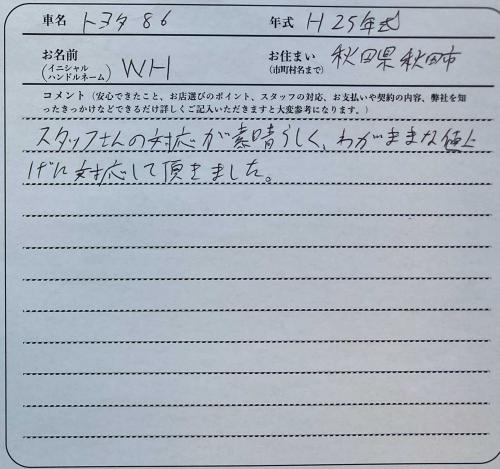 車名 トヨタ86 年式 H25年式
お名前 (イニシャル ハンドルネーム) WH お住まい (市町村名まで) 秋田県秋田市
コメント（安心できたこと、お店選びのポイント、スタッフの対応、お支払いや契約の内容、弊社を知
ったきっかけなどできるだけ詳しくご記入いただきますと大変参考になります。）
スタッフさんの対応が素晴らしく、わがままな値上
げに対応して頂きました。